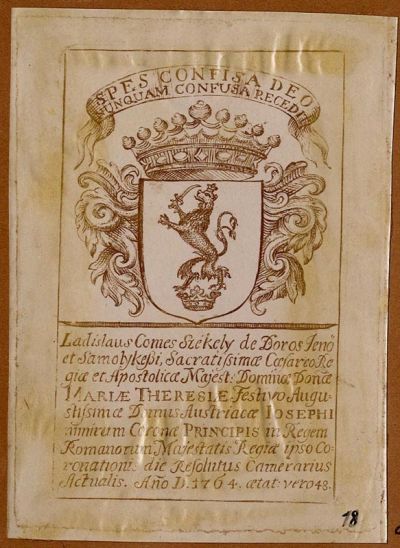 SPES CONFISA DEO
NUNQUAM CONFUSA RECEDIT
Ladislaus Comes Székely de Boros Jenö
et Samolykepi, Sacratissimæ Cæsareo Re
giæ et Apostolicæ Majest: Dominæ Donæ
MARIÆ THERESIÆ, festivo Augu
stissimæ Domus Austriacæ IOSEPHI
nimirum Coronæ PRINCIPIS in Regem
Romanorum Majestatis Regiæ ipso Co-
ronationis die Resolutus Camerarius
Actualis. Año D. 1764. ætat: vero 48.
18